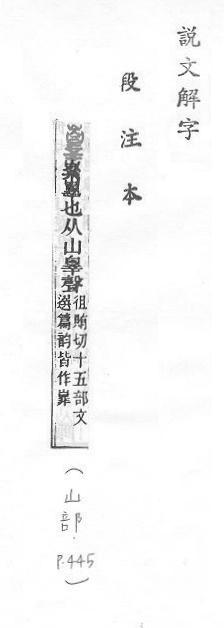 說文解字
段注本
也从山辠聲
徂賄切十五部文
選篇韵皆作嶵
(山部.
P.445)